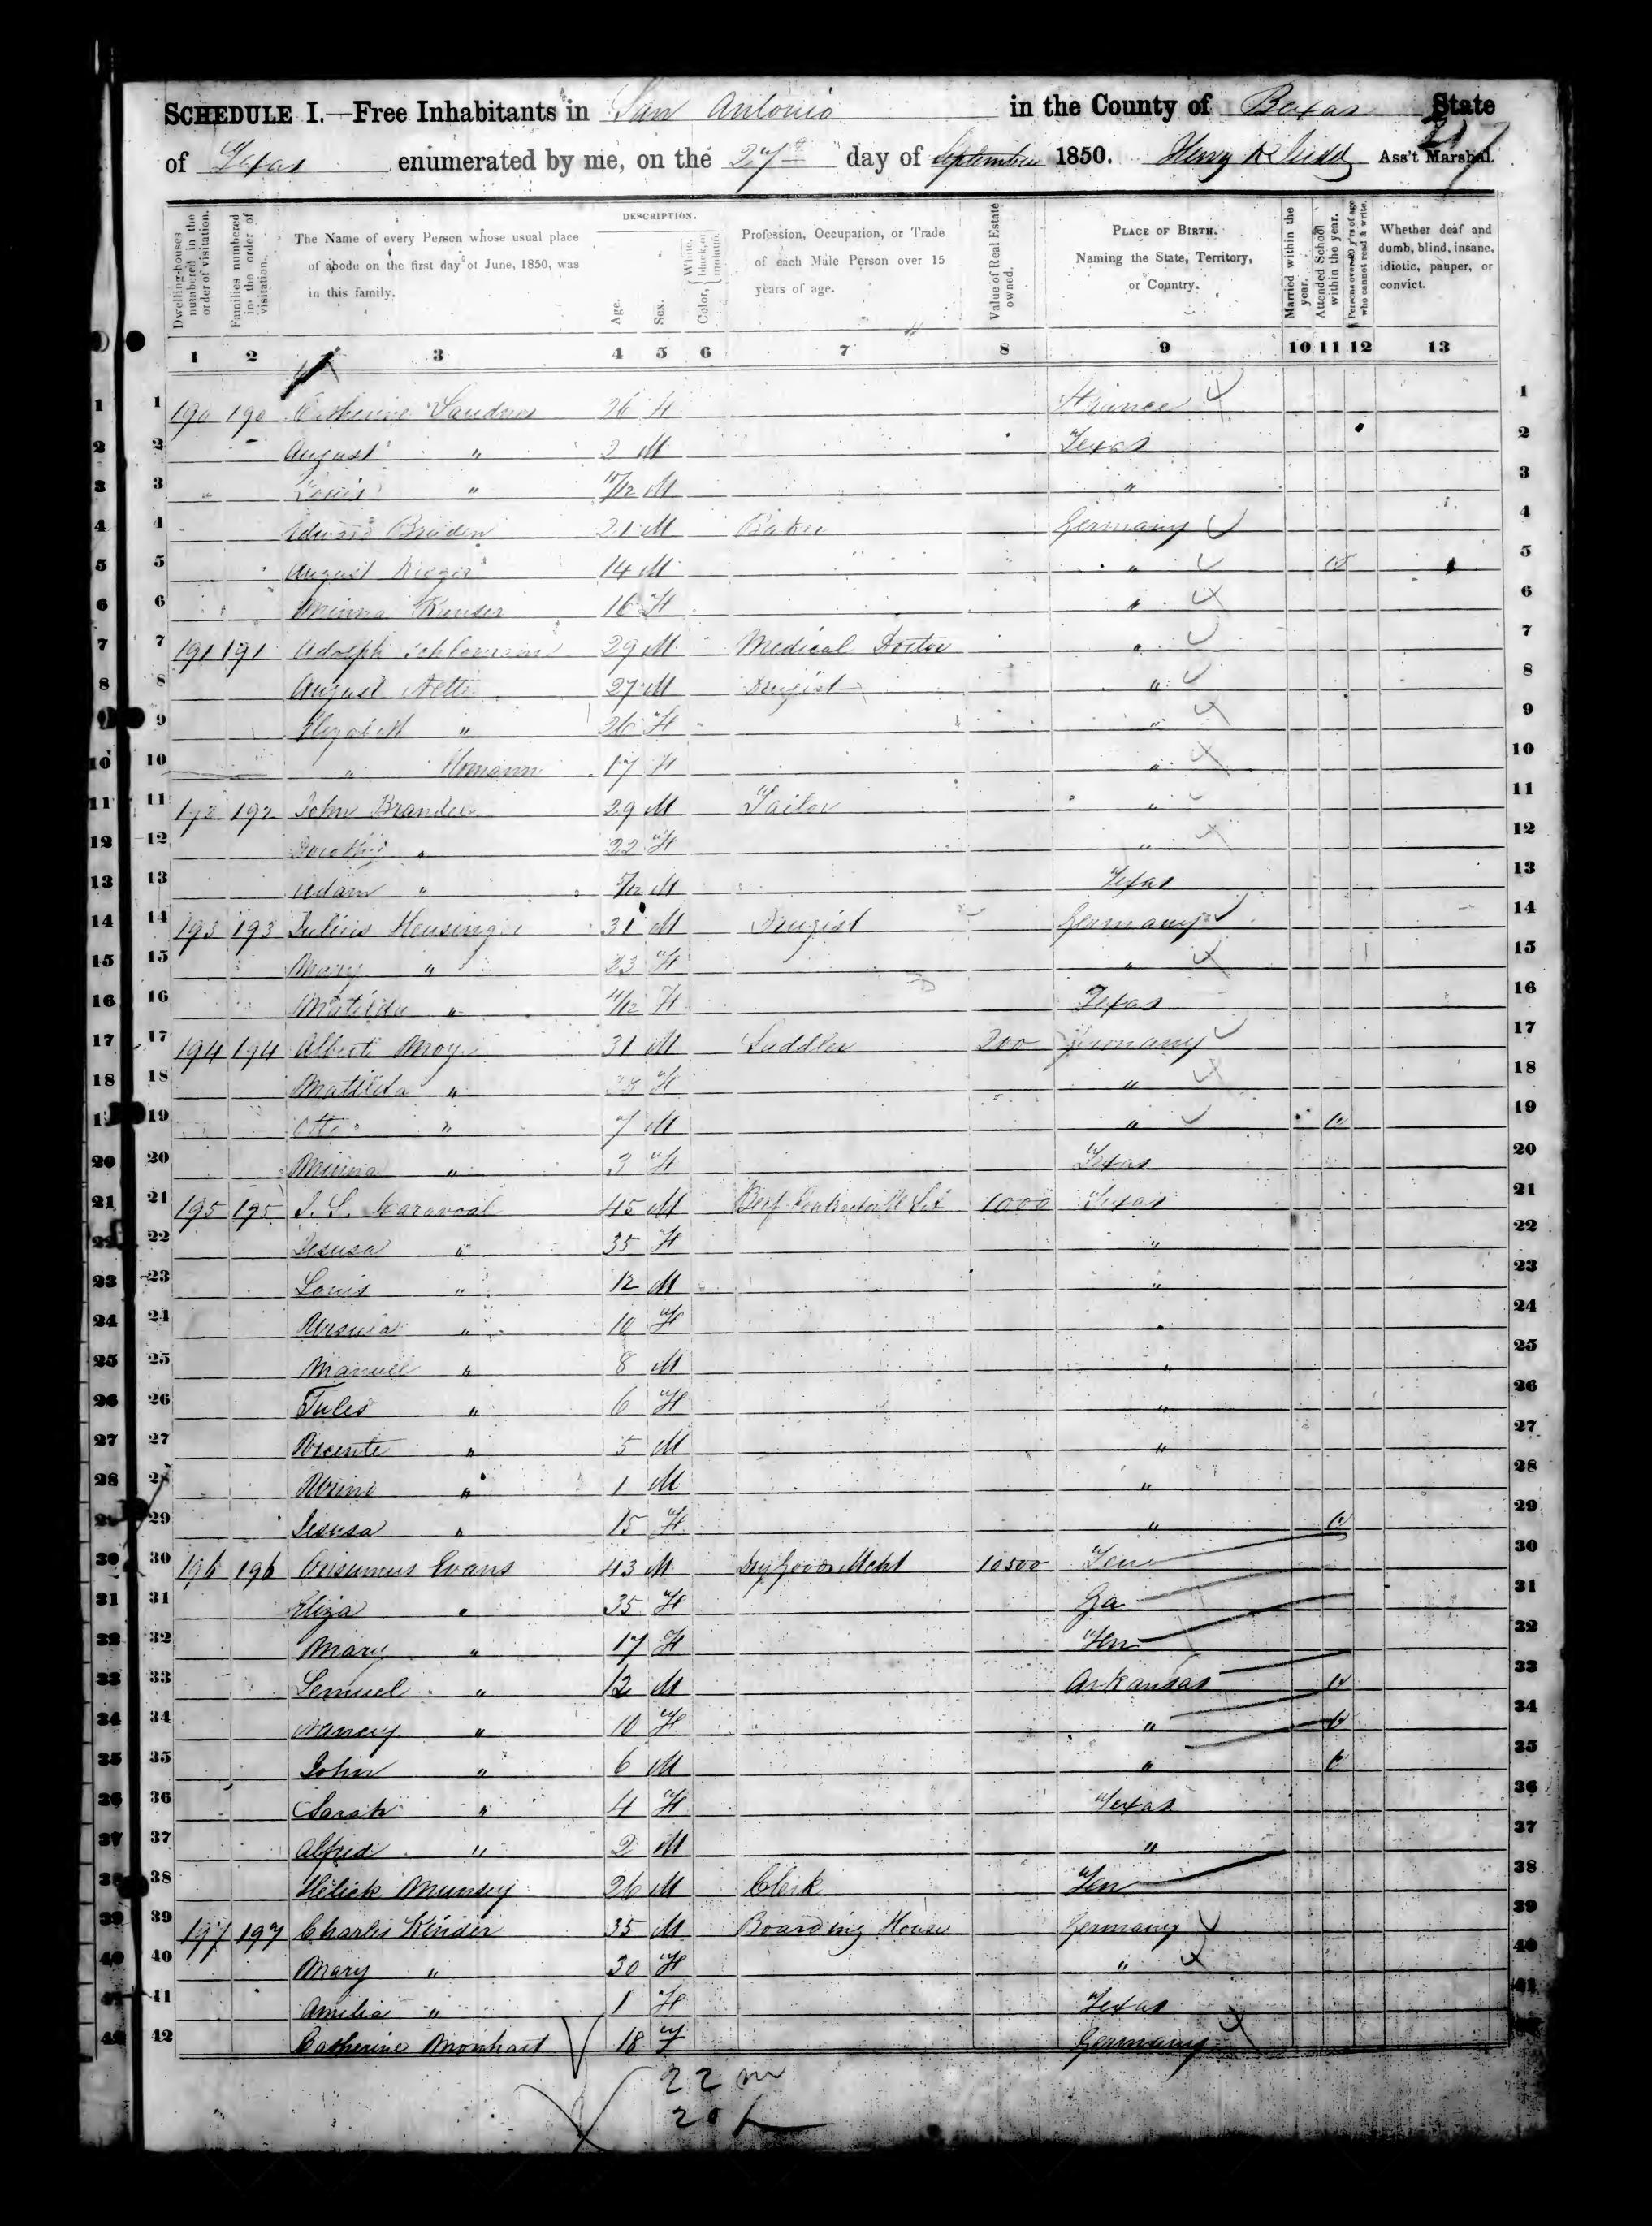 SCHEDULE I.—Free Inhabitants in San Antonio in the County of Bexar State
of Texas enumerated by me, on the 27th day of September 1850. Henry Ass't Marshal.
Dwelling-houses numbered in the order of visitation.
Families numbered in the order of visitation.
The Name of every Person whose usual place of abode on the first day of June, 1850, was in this family.
DESCRIPTION.
Age.
Sex.
Color, White, black, or mulatto.
Profession, Occupation, or Trade of each Male Person over 15 years of age.
Value of Real Estate owned.
PLACE OF BIRTH. Naming the State, Territory, or Country.
Married within the year.
Attended School within the year.
Persons over 20 y'rs of age who cannot read & write.
Whether deaf and dumb, blind, insane, idiotic, pauper, or convict.
1 2 3 4 5 6 7 8 9 10 11 12 13
1 190 190 Catherine Sandres 26 F France 1
2 August " 2 M Texas 2
3 Louis " 11/12 M " 3
4 Edward Braden 21 M Baker Germany 4
5 August 14 M " 5
6 Minna 16 F " 6
7 191 191 Adolph 29 M Medical Doctor " 7
8 August Nette 27 M Drugist " 8
9 Elizabeth " 26 F " 9
10 " Homann 17 F " 10
11 192 192 John Brandes 29 M Tailor " 11
12 Dorothy " 22 F " 12
13 Adam " /12 M Texas 13
14 193 193 Julius Heusinger 31 M Drugist Germany 14
15 Mary " 23 F " 15
16 Matilda " /12 F Texas 16
17 194 194 Albert Moye 31 M Saddler 200 Germany 17
18 Matilda " F " 18
19 Otto " 7 M " 19
20 Minna " 3 F Texas 20
21 195 195 45 M Beef Contractor 1000 Texas 21
22 Jesusa " 35 F " 22
23 Louis " 12 M " 23
24 Ursula " 10 F " 24
25 Manuel " 8 M " 25
26 Jules " 6 F " 26
27 Vicente " 5 M " 27
28 " 1 M " 28
29 Jesusa " 15 F " 29
30 196 196 Onisumus Evans 43 M Dry Goods Mcht 10500 Ten 30
31 Eliza " 35 F Ga 31
32 Mary " 17 F Ten 32
33 Lemuel " 12 M Arkansas 33
34 Nancy " 10 F " 34
35 John " 6 M " 35
36 Sarah " 4 F Texas 36
37 Alfred " 2 M " 37
38 Munsey 26 M Clerk Ten 38
39 197 197 Charles Kinder 35 M Boarding House Germany 39
40 Mary " 30 F " 40
41 Amelia " 1 F Texas 41
42 Catherine Monhart 18 F Germany
22 m
20 f